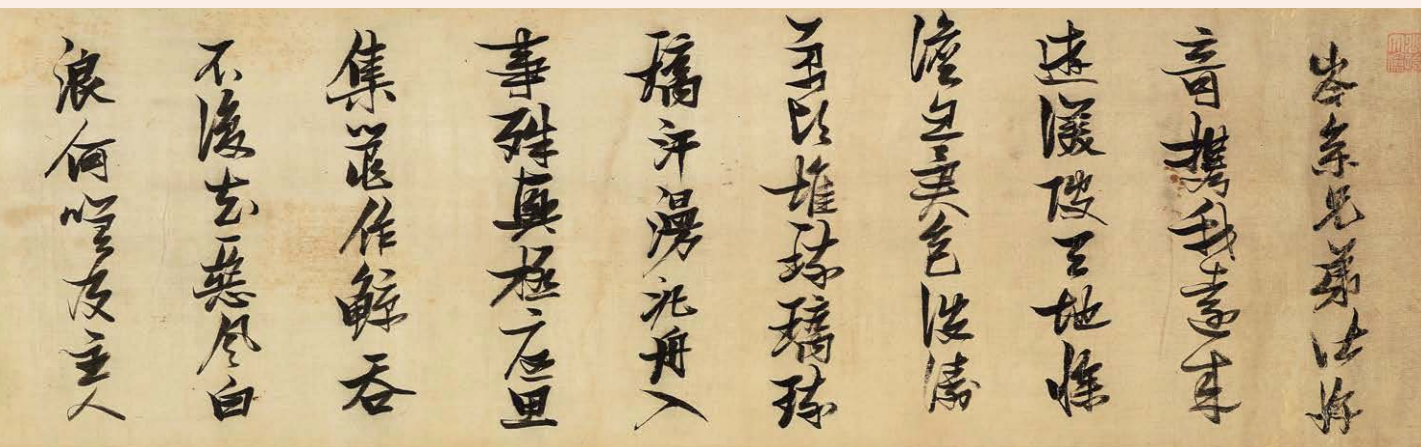 岑參兄弟皆好
奇攜我遠來
遊渼陂天地慘
澹忽異色波濤
萬頃堆琉璃琉
璃汗漫泛舟入
事殊興極憂思
集鼉作鯨吞
不復知惡風白
浪何嗟及主人